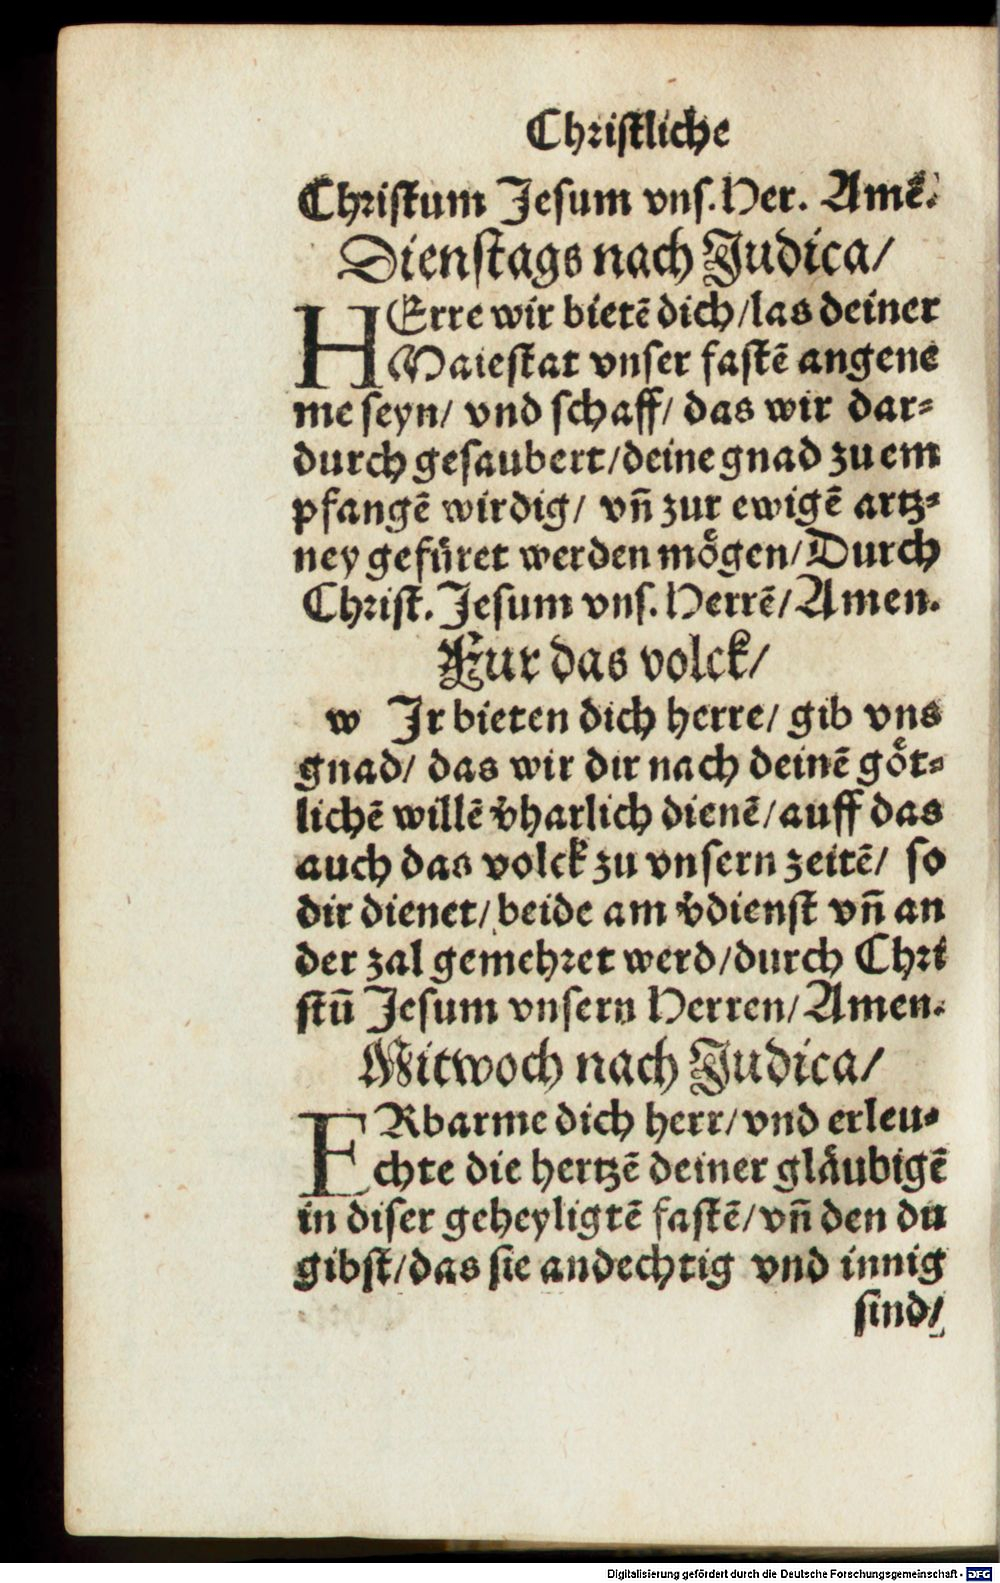 Christliche
Christum Jesum vns. Her. Amē.
Dienstags nach Judica/
HErre wir bietē dich/las deiner
Maiestat vnser fastē angene
me seyn/ vnd schaff/ das wir dar⸗
durch gesaubert/deine gnad zu em
pfangē wirdig/ vn̄ zur ewigē artz⸗
ney gefüret werden mögen/Durch
Christ. Jesum vns. Herrē/Amen.
Fur das volck/
w Jr bieten dich herre/ gib vns
gnad/ das wir dir nach deinē göt⸗
lichē willē v̄harlich dienē/auff das
auch das volck zu vnsern zeitē/ so
dir dienet/beide am v̄dienst vn̄ an
der zal gemehret werd/durch Chri
stū Jesum vnsern Herren/Amen.
Mitwoch nach Judica/
ERbarme dich herr/vnd erleu⸗
chte die hertzē deiner gläubigē
in diser geheyligtē fastē/vn̄ den du
gibst/das sie andechtig vnd innig
sind/
Digitalisierung gefördert durch die Deutsche Forschungsgemeinschaft - DFG